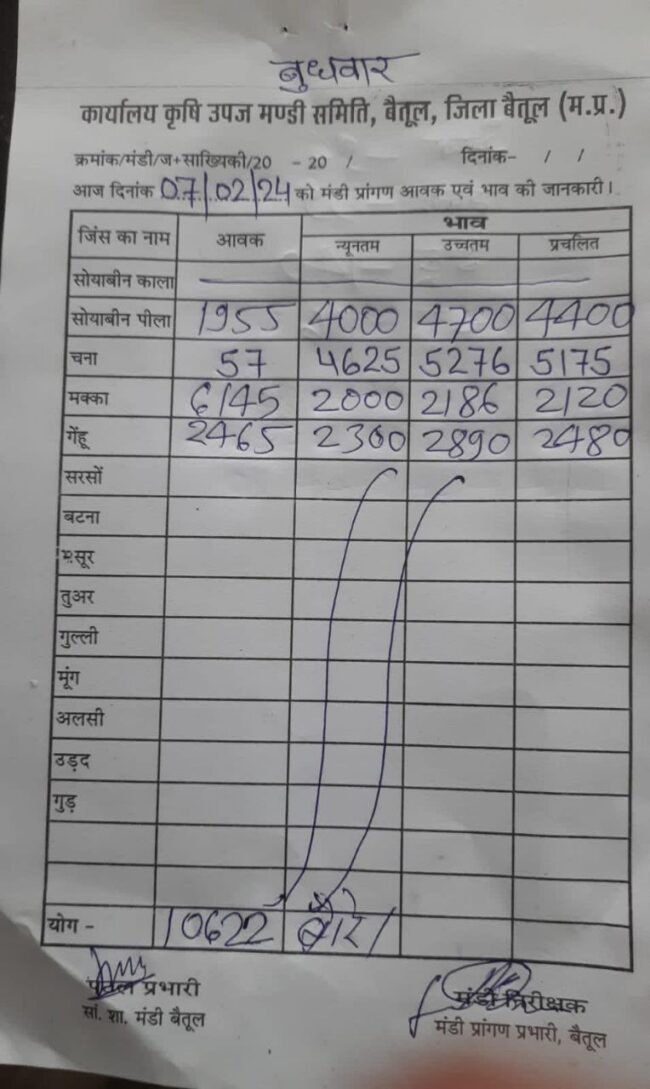 बुधवार
कार्यालय कृषि उपज मण्डी समिति, बैतूल, जिला बैतूल (म.प्र.)
क्रमांक/मंडी/ज+साख्यिकी/20 - 20 / दिनांक- / /
आज दिनांक 07/02/24 को मंडी प्रांगण आवक एवं भाव की जानकारी।
जिंस का नाम आवक भाव
न्यूनतम उच्चतम प्रचलित
सोयाबीन काला
सोयाबीन पीला 1955 4000 4700 4400
चना 57 4625 5276 5175
मक्का 6145 2000 2186 2120
गेंहू 2465 2300 2890 2480
सरसों
बटना
मसूर
तुअर
गुल्ली
मूंग
अलसी
उड़द
गुड़
योग - 10622 बोरे
प्रभारी मंडी निरीक्षक
सां. शा. मंडी बैतूल मंडी प्रांगण प्रभारी, बैतूल